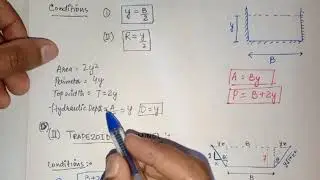 Conditions
(I) y = B/2
(II) R = y/2
Area = 2y²
Perimeter = 4y
Top width = T = 2y
Hydraulic Depth = A = y D = y
y
B
A = By
P = B+2y
(II) TRAPEZOID
Conditions :-
B